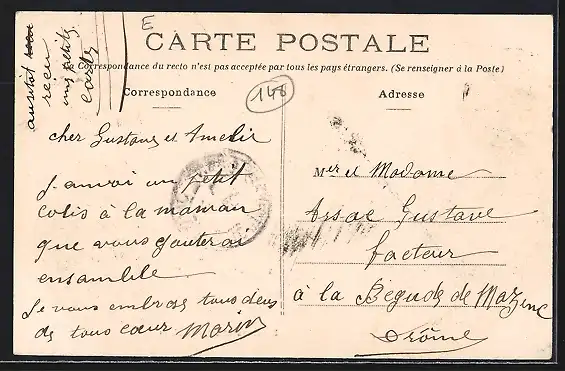 E
CARTE POSTALE
La Correspondance du recto n'est pas acceptée par tous les pays étrangers. (Se renseigner à la Poste)
Correspondance
148
Adresse
aussitot
recu
une petite
carte
cher Gustave et Amelie
J anvoi un petit
colis à la maman
que vous gouterai
ensamble
Je vous embrase tous deus
de tous cœur Marin
Mer et Madame
Arsac Gustave
facteur
à la Bégude de Mazenc
Drôme